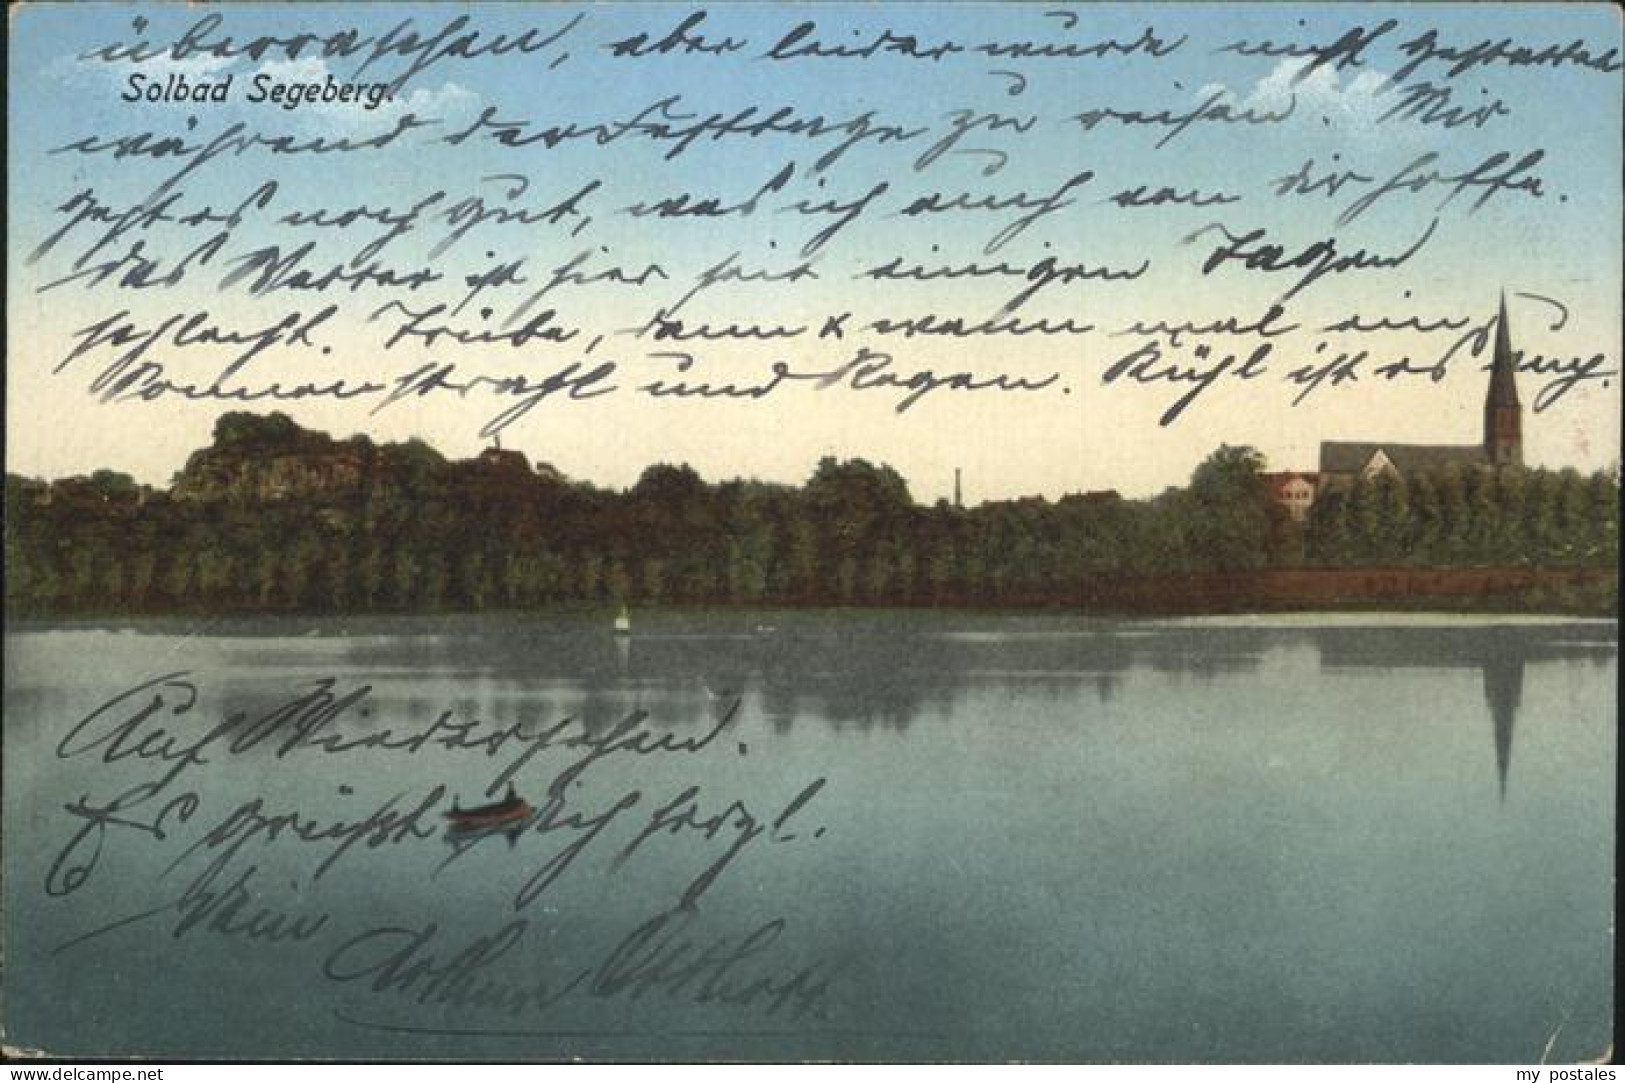 überraschen, aber leider wurde nicht gestattet
Solbad Segeberg.
während der Festtage zu reisen. Mir
geht es noch gut, was ich auch von dir hoffe.
das Wetter ist hier seit einigen Tagen
schlecht. Trübe, dann & wann mal ein
Sonnenstrahl und Regen. Kühl ist es auch.
Auf Wiedersehen.
Es grüßt dich herzl.
Dein
Arthur
www.delcampe.net
my_postales